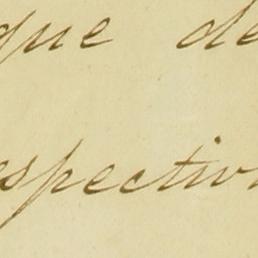 que de
espectiv